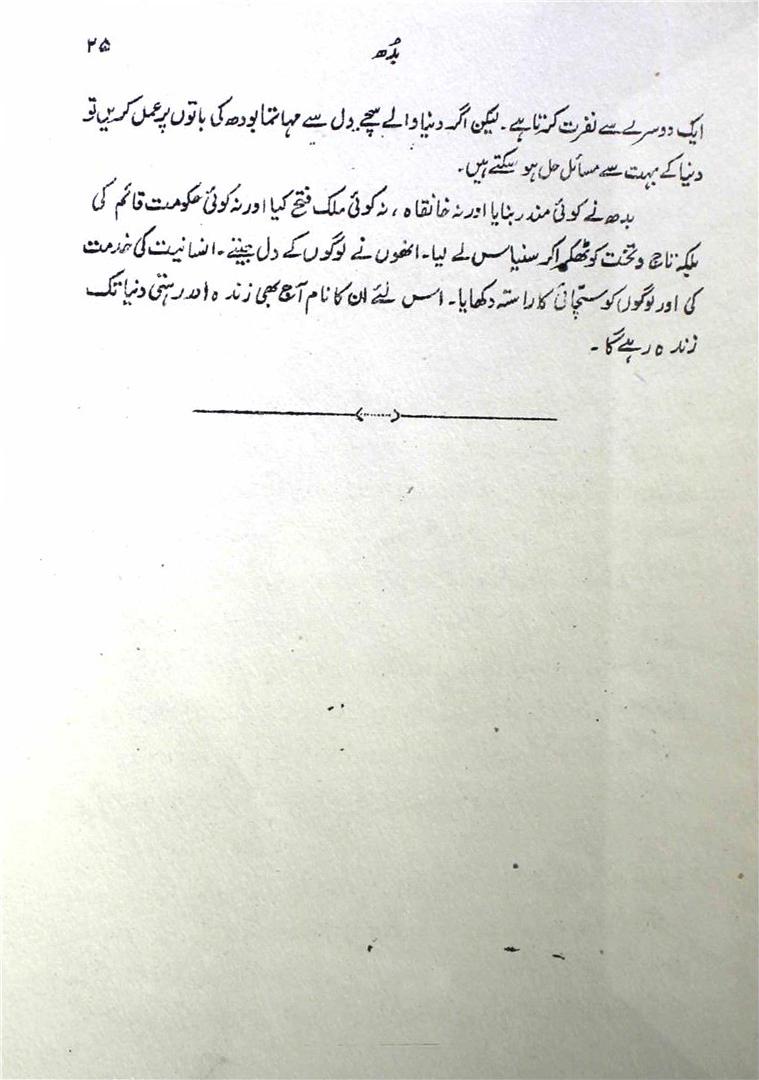 بدُھ ۲۵
ایک دوسرے سے نفرت کرتا ہے۔ لیکن اگر دنیا والے سچے دل سے مہاتما بودھ کی باتوں پر عمل کریں تو
دنیا کے بہت سے مسائل حل ہو سکتے ہیں۔
بدھ نے کوئی مندر بنایا اور نہ خانقاہ، نہ کوئی ملک فتح کیا اور نہ کوئی حکومت قائم کی
بلکہ تاج و تخت کو ٹھکرا کر سنیاس لے لیا۔ انھوں نے لوگوں کے دل جیتے۔ انسانیت کی خدمت
کی اور لوگوں کو سچّائی کا راستہ دکھایا۔ اس لئے ان کا نام آج بھی زندہ اور رہتی دنیا تک
زندہ رہے گا۔